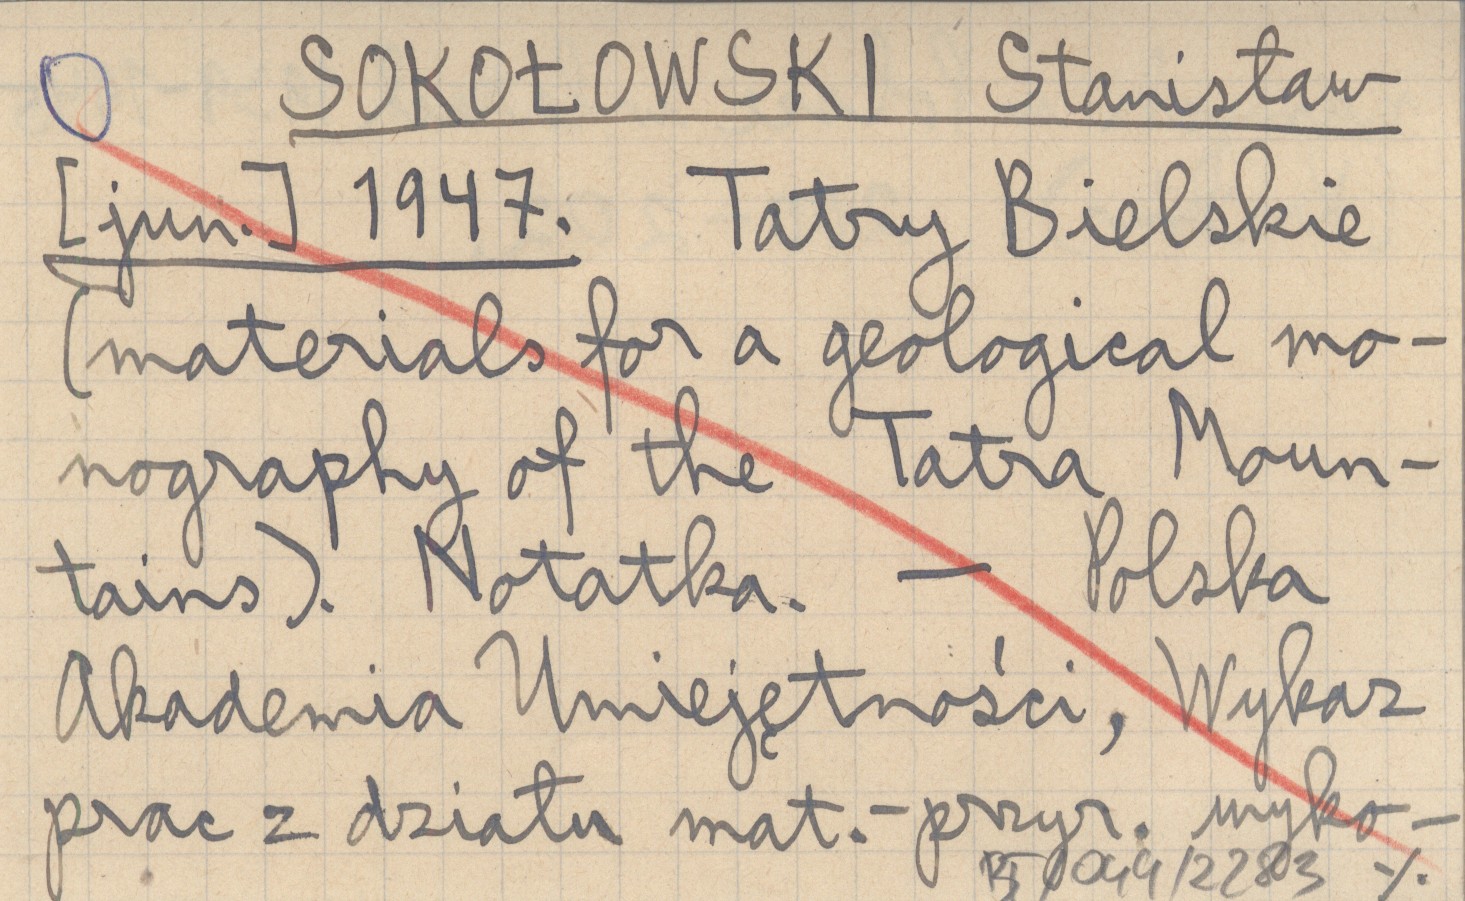 SOKOŁOWSKI Stanisław
[jun.] 1947. Tatry Bielskie
(materials for a geological mo-
nography of the Tatra Moun-
tains). Notatka. — Polska
Akademia Umiejętności, Wykaz
prac z działu mat.-przyr. wyko-
044/2283 ·/.